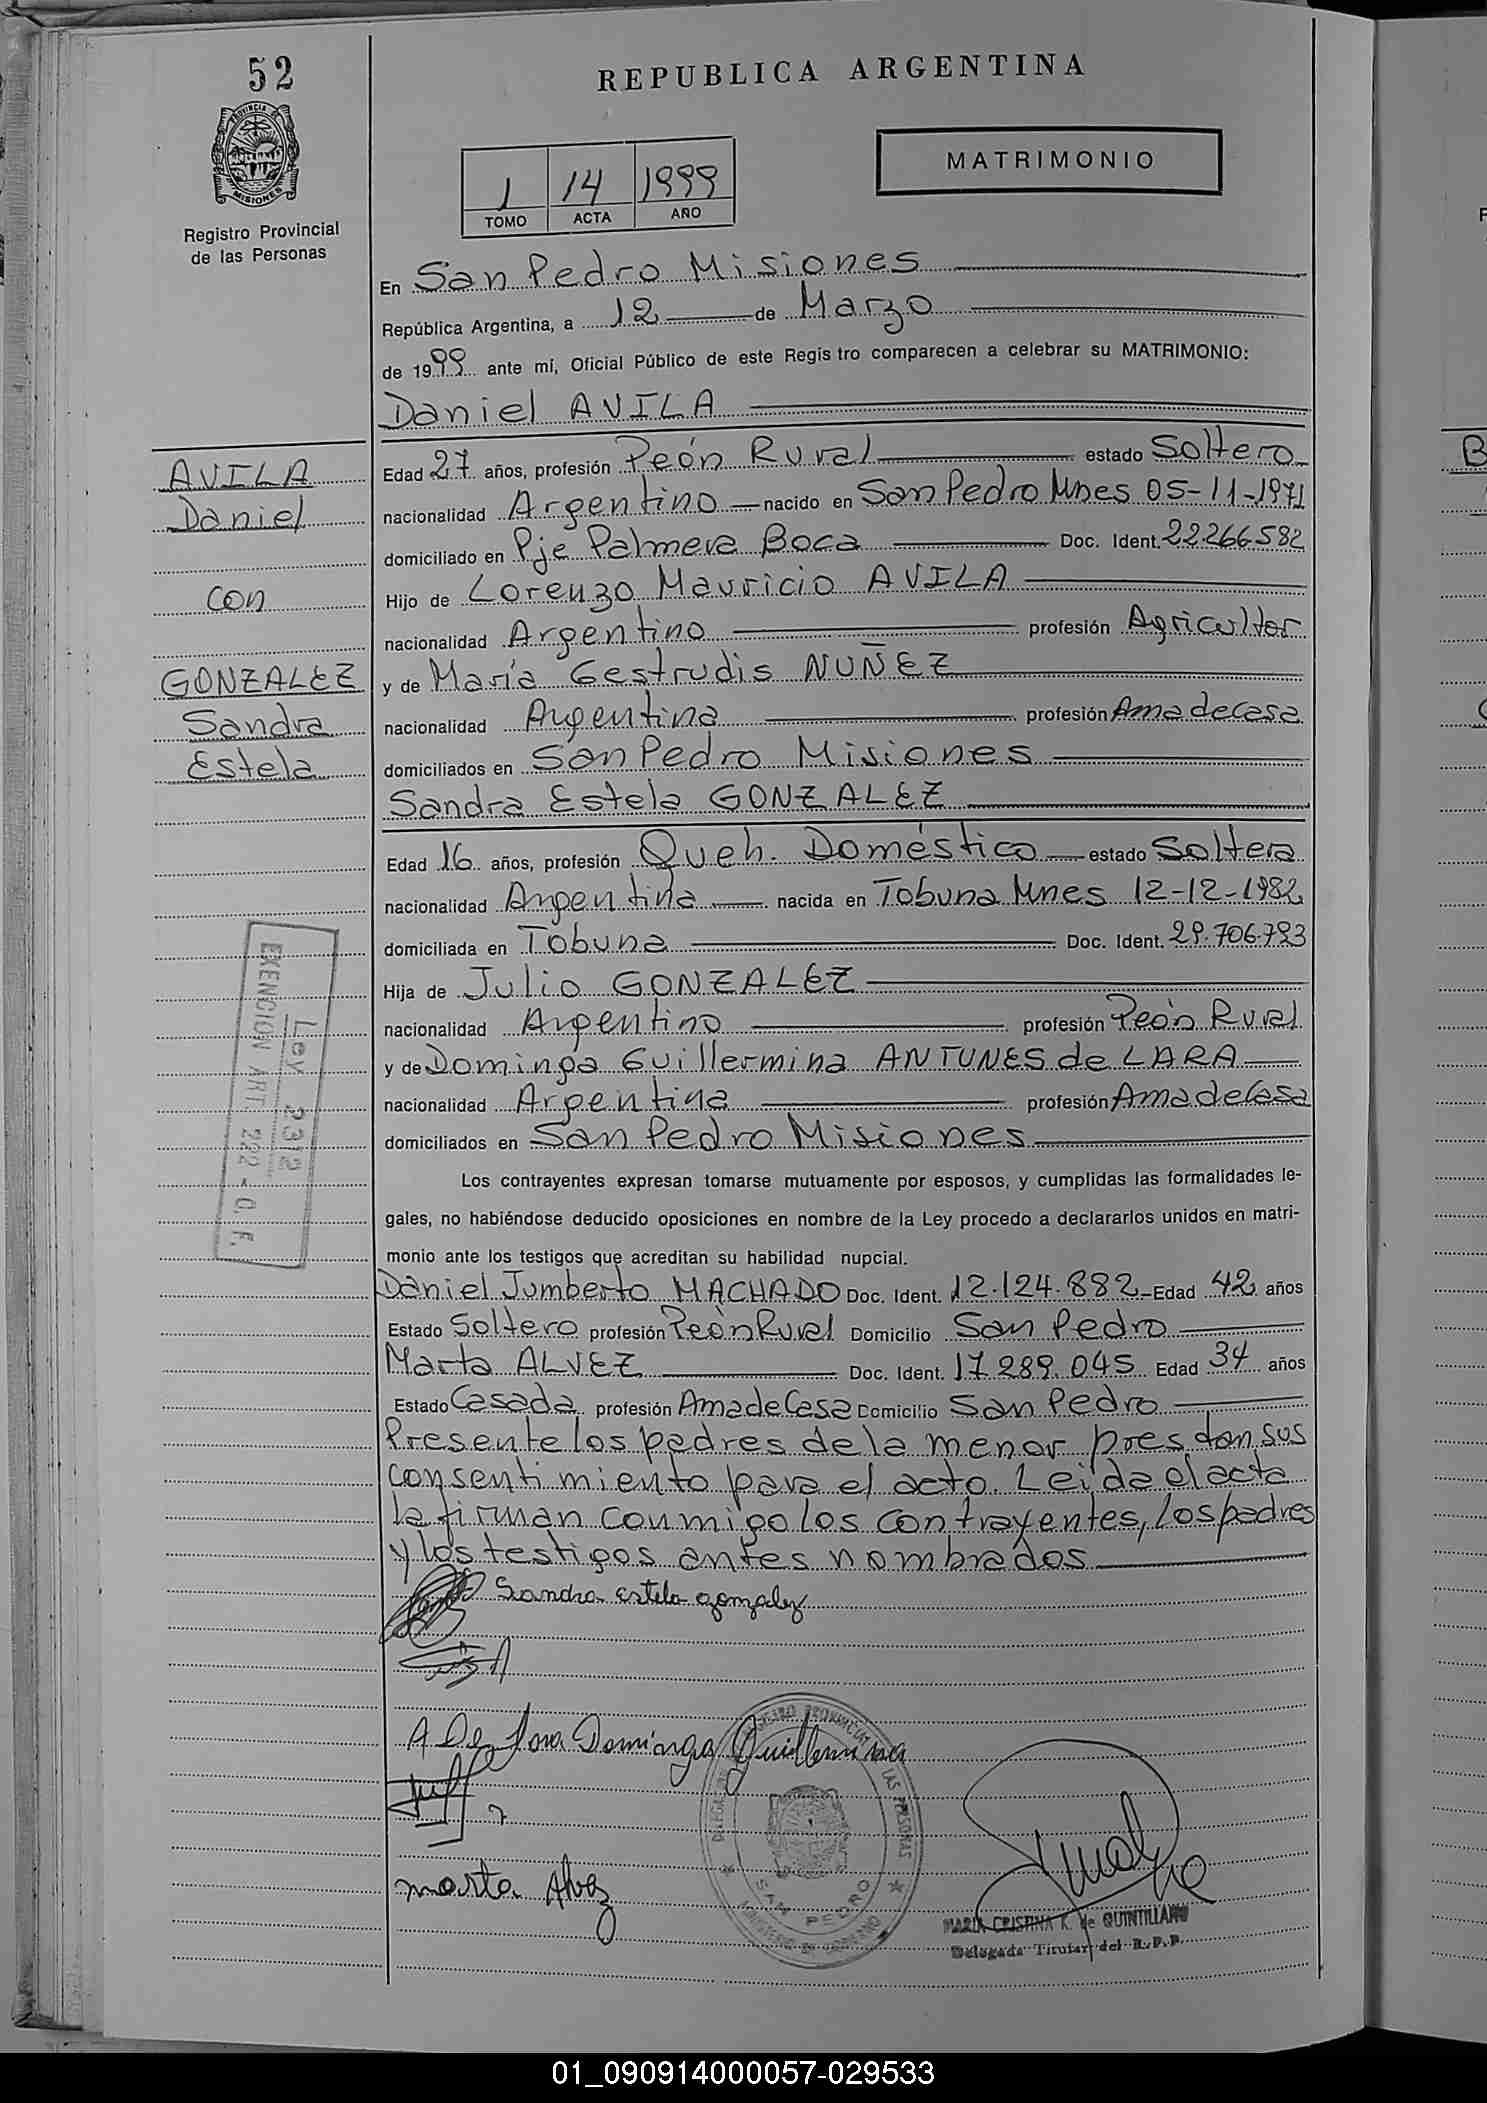 52
PROVINCIA DE
MISIONES
Registro Provincial
de las Personas
REPUBLICA ARGENTINA
1 14 1999
TOMO ACTA AÑO
MATRIMONIO
En San Pedro Misiones
República Argentina, a 12 de Marzo
de 1999 ante mí, Oficial Público de este Regis tro comparecen a celebrar su MATRIMONIO:
Daniel AVILA
AVILA
Daniel
con
GONZALEZ
Sandra
Estela
Edad 27 años, profesión Peón Rural estado Soltero
nacionalidad Argentino nacido en San Pedro Mnes 05-11-1971
domiciliado en Pje Palmera Boca Doc. Ident. 22.266.582
Hijo de Lorenzo Mauricio AVILA
nacionalidad Argentino profesión Agricultor
y de María Gestrudis NUÑEZ
nacionalidad Argentina profesión Ama de Casa
domiciliados en San Pedro Misiones
Sandra Estela GONZALEZ
Edad 16 años, profesión Queh. Doméstico estado Soltera
nacionalidad Argentina nacida en Tobuna Mnes 12-12-1982
domiciliada en Tobuna Doc. Ident. 29.706.793
Hija de Julio GONZALEZ
nacionalidad Argentino profesión Peón Rural
y de Dominga Guillermina ANTUNES de LARA
nacionalidad Argentina profesión Ama de Casa
domiciliados en San Pedro Misiones
Ley 2312
EXENCION ART. 222 - C. F.
Los contrayentes expresan tomarse mutuamente por esposos, y cumplidas las formalidades le-
gales, no habiéndose deducido oposiciones en nombre de la Ley procedo a declararlos unidos en matri-
monio ante los testigos que acreditan su habilidad nupcial.
Daniel Jumberto MACHADO Doc. Ident. 12.124.882 Edad 42 años
Estado Soltero profesión Peón Rural Domicilio San Pedro
Marta ALVEZ Doc. Ident. 17.289.045 Edad 34 años
Estado Casada profesión Ama de Casa Domicilio San Pedro
Presente los padres de la menor presdan sus
consentimiento para el acto. Leida el acta
la firman conmigo los contrayentes, los padres
y los testigos antes nombrados
Sandra estela gonzalez
A De Lara Dominga Guillermina
marta Alvez
REGISTRO PROVINCIAL DE LAS PERSONAS
SAN PEDRO
MINISTERIO DE GOBIERNO
MARIA CRISTINA K. de QUINTILLAN
Delegada Titular del R.P.P.
01_090914000057-029533